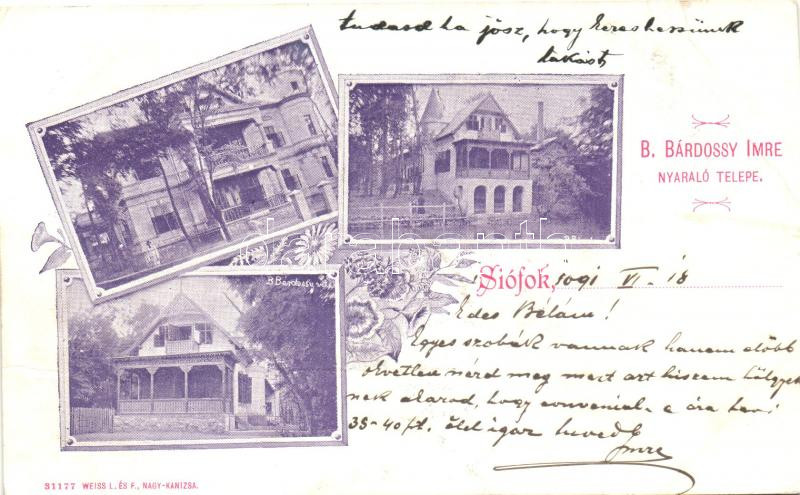 tudasd ha jösz, hogy kereshessünk
lakást
B. BÁRDOSSY IMRE
NYARALÓ TELEPE.
B Bárdossy villa
Siófok, 1901 VI - 18
Édes Bélám!
Egyes szobák vannak hanem előbb
okvetlen nézd meg mert azt hiszem
nek akarod, hogy conveniál-e ára havi
35-40 ft. ölel igaz híved
Imre
31177 WEISS L. ÉS F., NAGY-KANIZSA.